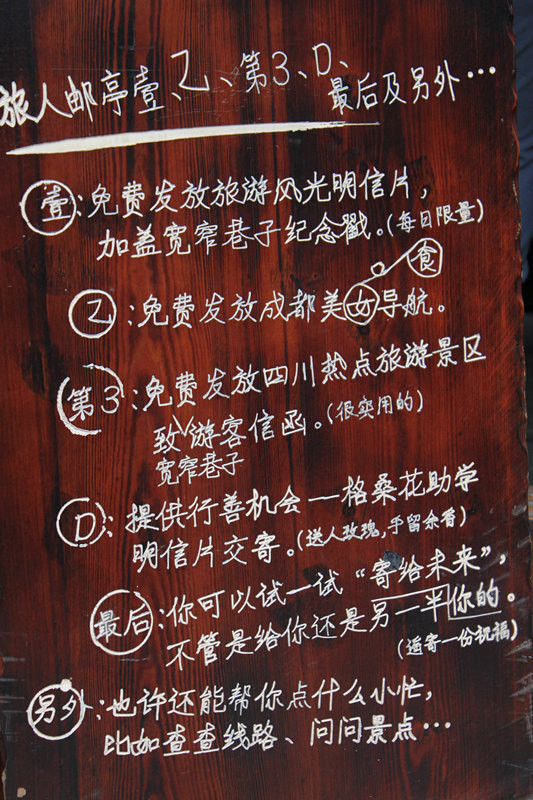 旅人邮亭壹、乙、第3、D、最后及另外…
壹：免费发放旅游风光明信片，
加盖宽窄巷子纪念戳。（每日限量）
食
乙：免费发放成都美女导航。
第3：免费发放四川热点旅游景区
致游客信函。（很实用的）
宽窄巷子
D：提供行善机会—格桑花助学
明信片交寄。（送人玫瑰，手留余香）
最后：你可以试一试“寄给未来”，
不管是给你还是另一半你的。
（遥寄一份祝福）
另外：也许还能帮你点什么小忙，
比如查查线路、问问景点…